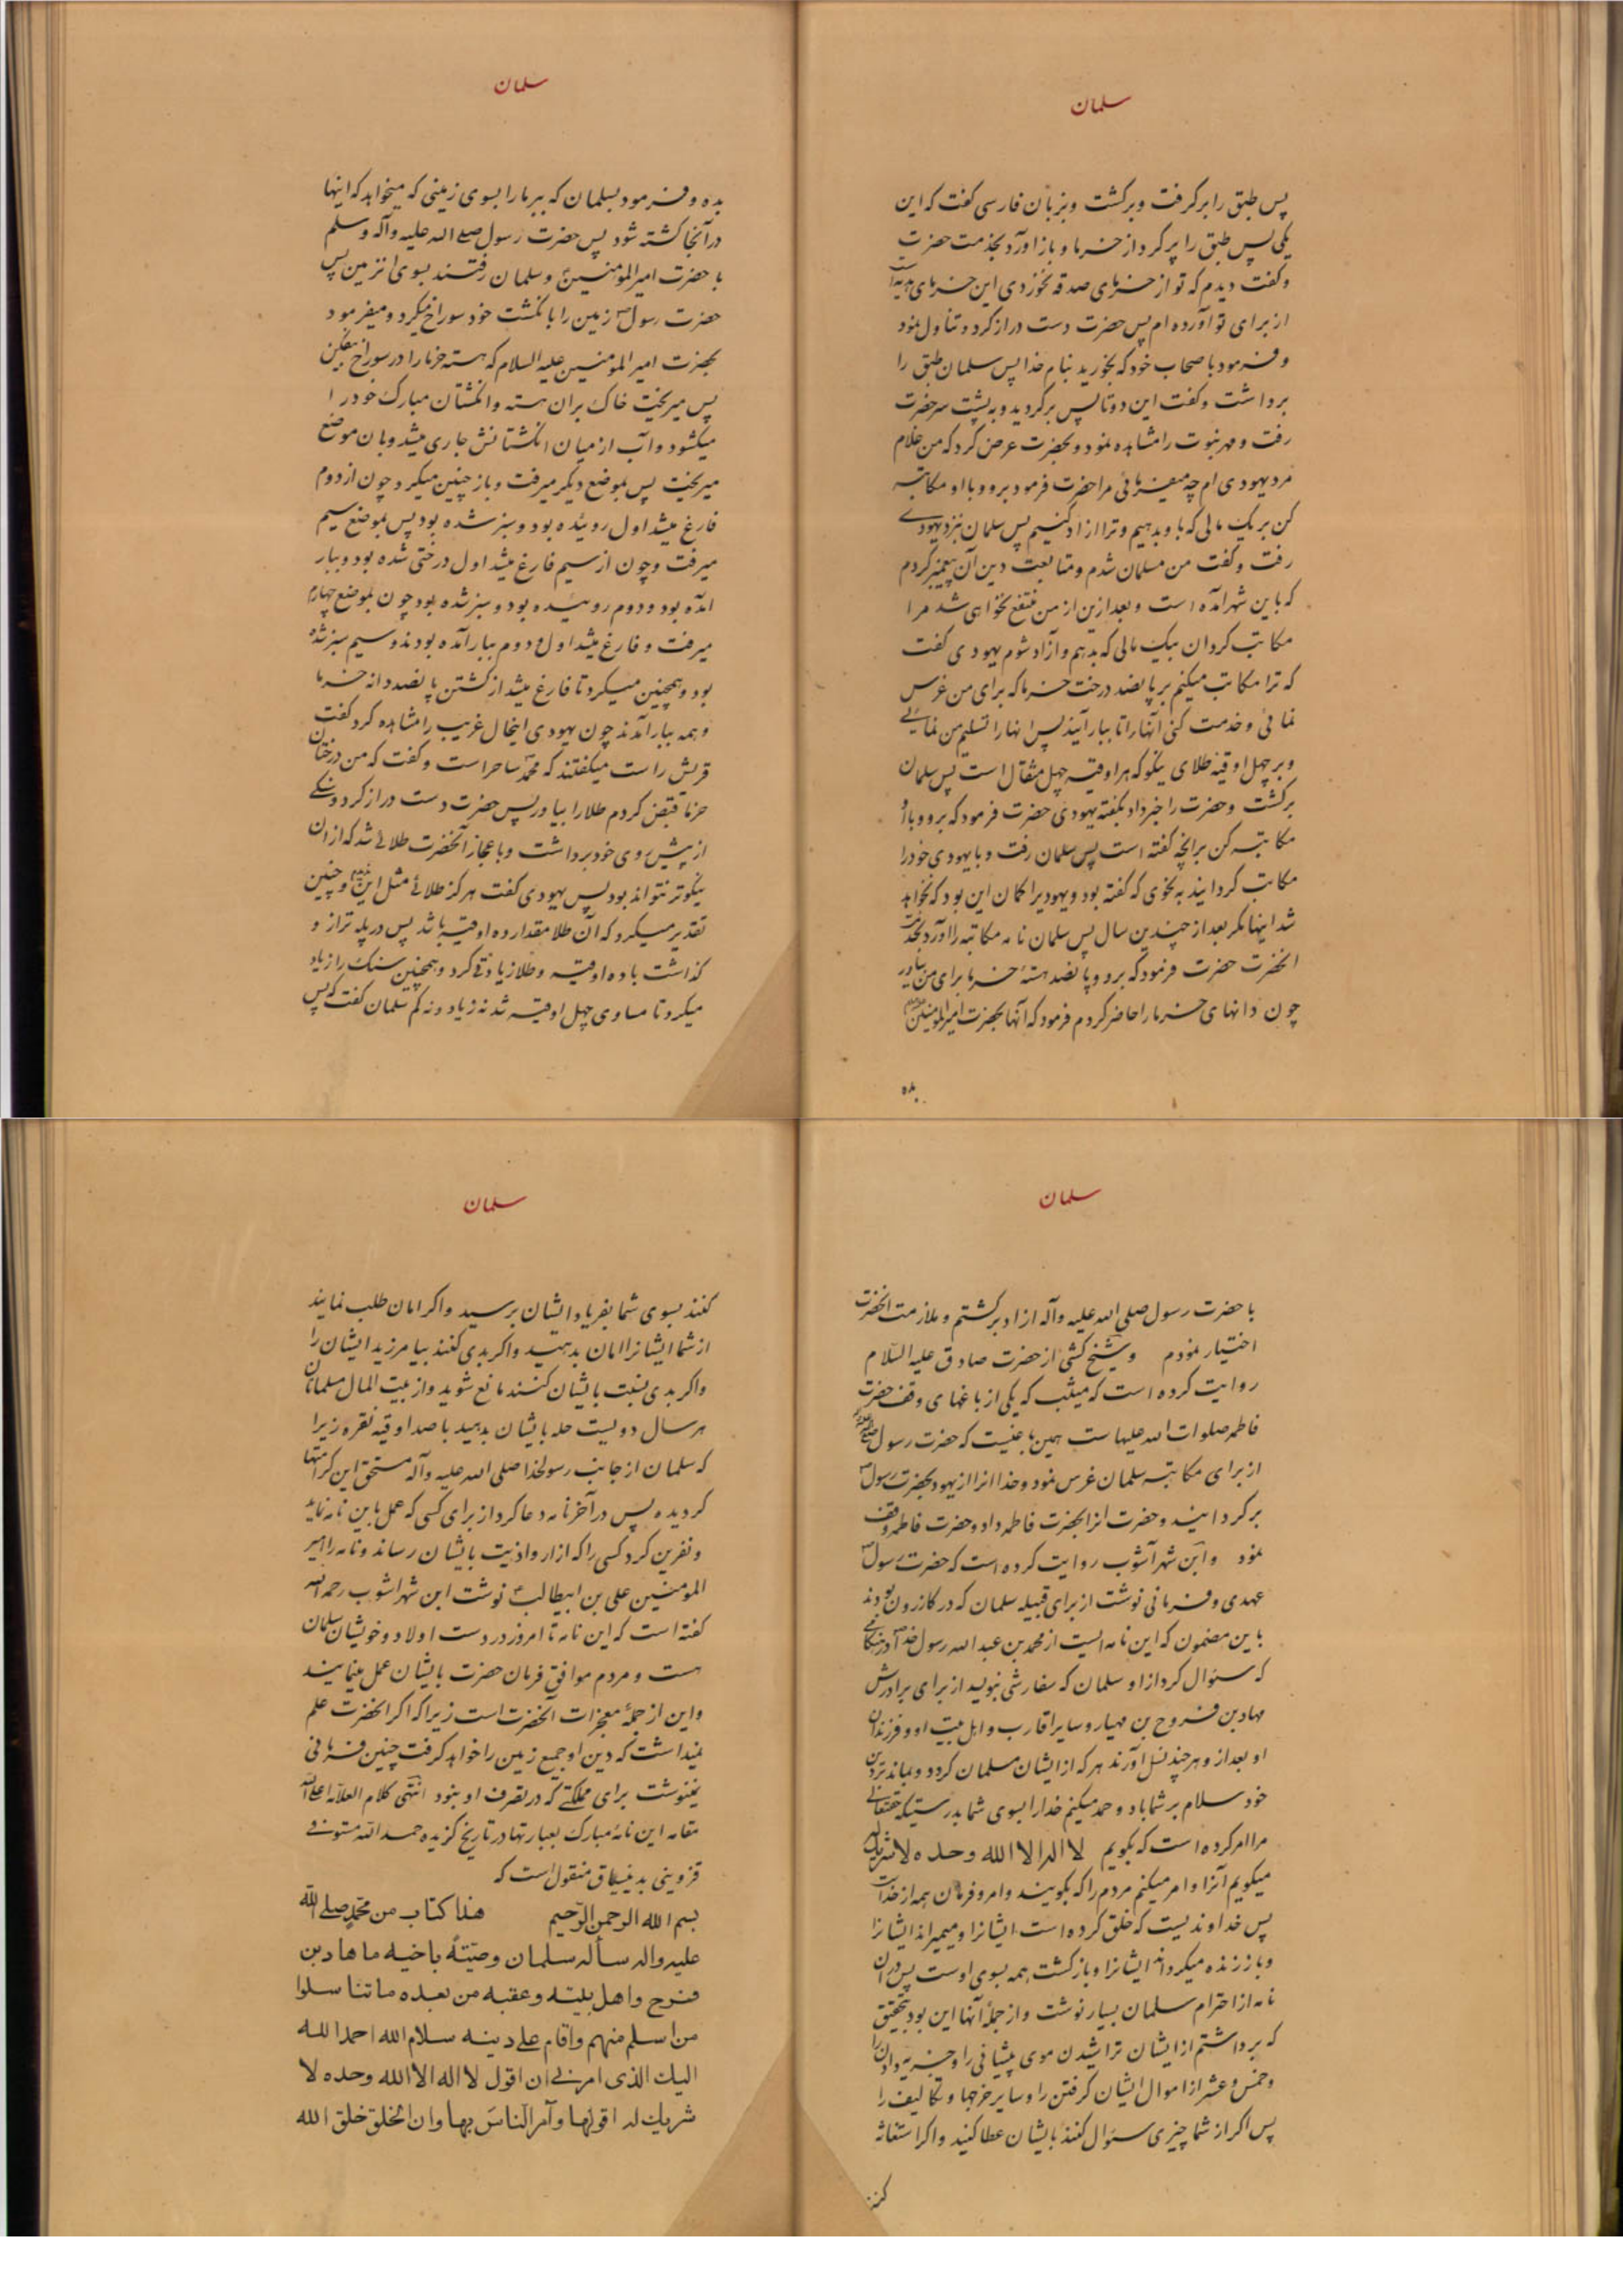 سلمان
پس طبق را برگرفت و برگشت و بزبان فارسی گفت که این
یکی پس طبق را پر کرد از خرما و باز آورد بخدمت حضرت
و گفت دیدم که تو از خرمای صدقه نخوردی این خرمای هدیه است
از برای تو آورده ام پس حضرت دست دراز کرد و تناول نمود
و فرمود باصحاب خود که بخورید بنام خدا پس سلمان طبق را
برداشت و گفت این دوتا پس برگردید و به پشت سر حضرت
رفت و مهر نبوت را مشاهده نمود و بحضرت عرض کرد که من غلام
مرد یهودی ام چه میفرمائی مرا حضرت فرمود برو و با او مکاتبه
کن بر یک مالی که باو بدهیم و ترا ازاد کنیم پس سلمان بنزد یهودی
رفت و گفت من مسلمان شدم و متابعت دین آن پیغمبر کردم
که باین شهر آمده است و بعد ازین از من منتفع نخواهی شد مرا
مکاتب گردان بیک مالی که بدهم و آزاد شوم یهودی گفت
که ترا مکاتب میکنم بر پانصد درخت خرما که برای من غرس
نمائی و خدمت کنی آنها را تا ببار آیند پس انها را تسلیم من نمائی
و بر چهل اوقیه طلای نیکو که هر اوقیه چهل مثقال است پس سلمان
برگشت و حضرت را خبر داد بگفته یهودی حضرت فرمود که برو و باو
مکاتبه کن برانچه گفته است پس سلمان رفت و با یهودی خود را
مکاتب گردانید به نحوی که گفته بود و یهودیرا گمان این بود که نخواهد
شد اینها مگر بعد از چندین سال پس سلمان نامه مکاتبه را آورد بخدمت
انحضرت حضرت فرمود که برو و پانصد هسته خرما برای من بیاور
چون دانهای خرما را حاضر کردم فرمود که آنها بحضرت امیر المومنین
بده
سلمان
بده و فرمود بسلمان که ببر ما را بسوی زمینی که میخواهد که اینها
در آنجا کشته شود پس حضرت رسول صلی الله علیه و آله و سلم
با حضرت امیر المومنین و سلمان رفتند بسوی انزمین پس
حضرت رسول ص زمین را بانگشت خود سوراخ میکرد و میفرمود
بحضرت امیر المومنین علیه السلام که هسته خرما را در سوراخ بیفکن
پس میریخت خاک بران هسته و انگشتان مبارک خود را
میگشود و آب از میان انگشتانش جاری میشد و بان موضع
میریخت پس بموضع دیگر میرفت و باز چنین میکرد و چون از دوم
فارغ میشد اول روئیده بود و سبز شده بود پس بموضع سیم
میرفت و چون از سیم فارغ میشد اول درختی شده بود و ببار
امده بود و دوم روئیده بود و سبز شده بود چون بموضع چهارم
میرفت و فارغ میشد اول و دوم ببار آمده بودند و سیم سبز شده
بود و همچنین میکرد تا فارغ میشد از کشتن پانصد دانه خرما
و همه ببار آمدند چون یهودی اینحال غریب را مشاهده کرد گفت
قریش راست میگفتند که محمد ساحر است و گفت که من درختان
خرما قبض کردم طلا را بیاور پس حضرت دست دراز کرد و سنگی
از پیش روی خود برداشت و باعجاز آنحضرت طلائی شد که از ان
نیکوتر نتواند بود پس یهودی گفت هرگز طلائی مثل این ندیدم و چنین
تقدیر میکرد که آن طلا مقدار ده اوقیه باشد پس در پله ترازو
گذاشت با ده اوقیه و طلا زیادتی کرد و همچنین سنگ را زیاد
میکرد تا مساوی چهل اوقیه شد نه زیاد و نه کم سلمان گفت که پس
سلمان
با حضرت رسول صلی الله علیه و آله ازاد برگشتم و ملازمت انحضرت
اختیار نمودم و شیخ کشی از حضرت صادق علیه السلام
روایت کرده است که میثب که یکی از باغهای وقف حضرت
فاطمه صلوات الله علیها ست همین باغیست که حضرت رسول
از برای مکاتبه سلمان غرس نمود و خدا انرا از یهود بحضرت رسول ص
برگردانید و حضرت انرا بحضرت فاطمه داد و حضرت فاطمه وقف
نمود و ابن شهر آشوب روایت کرده است که حضرت رسول ص
عهدی و فرمانی نوشت از برای قبیله سلمان که در کازرون بودند
باین مضمون که این نامه ایست از محمد بن عبد الله رسول خدا در هنگامی
که سئوال کرد از او سلمان که سفارشی بنویسد از برای برادرش
مهاد بن فروح بن مهیار و سایر اقارب و اهل بیت او و فرزندان
او بعد از و هر چند نسل آورند هر که از ایشان مسلمان گردد و بماند بر دین
خود سلام بر شما باد و حمد میکنم خدا را بسوی شما بدرستیکه حقتعالی
مرا امر کرده است که بگویم لا اله الا الله وحده لا شریک له
میگویم آنرا و امر میکنم مردم را که بگویند و امر و فرمان همه از خداست
پس خداوندیست که خلق کرده است ایشانرا و میمیراند ایشانرا
و باز زنده میگرداند ایشانرا و بازگشت همه بسوی اوست پس در ان
نامه از احترام سلمان بسیار نوشت و از جمله آنها این بود بتحقیق
که برداشتم از ایشان تراشیدن موی پیشانی را و جزیه دادن را
و خمس و عشر از اموال ایشان گرفتن را و سایر خرجها و تکالیف را
پس اگر از شما چیزی سئوال کنند بایشان عطا کنید و اگر استغاثه
کنند
سلمان
کنند بسوی شما بفریاد ایشان برسید و اگر امان طلب نمایند
از شما ایشانرا امان بدهید و اگر بدی کنند بیامرزید ایشان را
و اگر بدی نسبت بایشان کنند مانع شوید و از بیت المال مسلمانان
هر سال دویست حله بایشان بدهید با صد اوقیه نقره زیرا
که سلمان از جانب رسولخدا صلی الله علیه و آله مستحق این کرامتها
گردیده پس در آخر نامه دعا کرد از برای کسی که عمل باین نامه نماید
و نفرین کرد کسی را که ازار و اذیت بایشان رساند و نامه را امیر
المومنین علی بن ابیطالب نوشت ابن شهر اشوب رحمه الله
گفته است که این نامه تا امروز در دست اولاد و خویشان سلمان
هست و مردم موافق فرمان حضرت بایشان عمل مینمایند
و این از جملهٔ معجزات آنحضرت است زیرا که اگر انحضرت علم
نمیداشت که دین او جمیع زمین را خواهد گرفت چنین فرمانی
نمینوشت برای مملکتی که در تصرف او نبود انتهی کلام العلامه اعلی الله
مقامه این نامهٔ مبارک بعبارتها در تاریخ گزیده حمد الله مستوفی
قزوینی بدینسیاق منقول است که
بسم الله الرحمن الرحیم هذا کتاب من محمد صلی الله
علیه واله سأله سلمان وصیّةً باخیه ماهاد بن
فروح واهل بیته وعقبه من بعده ما تناسلوا
من اسلم منهم واقام علی دینه سلام الله احمد الله
الیک الذی امرنی ان اقول لا اله الا الله وحده لا
شریک له اقولها وآمر الناسَ بها وان الخلق خلق الله